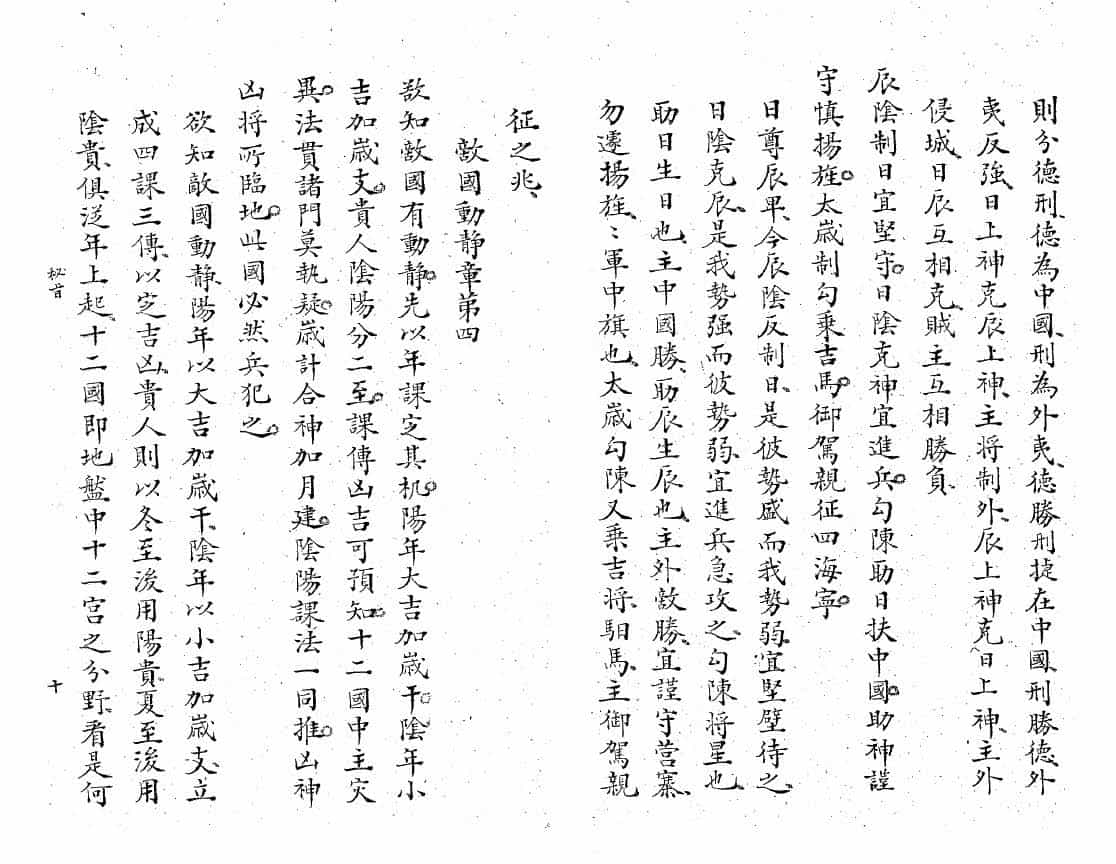 則分德刑、德為中國、刑為外夷、德勝刑捷在中國、刑勝德、外
夷反強、日上神克辰上神、主將制外、辰上神克日上神、主外
侵城、日辰互相克賊主互相勝負、
辰陰制日宜堅守。日陰克神宜進兵。勾陳助日扶中國。助神謹
守慎揚旌。太嵗制勾乘吉馬。御駕親征四海寧。
日尊辰卑、今辰陰反制日、是彼勢盛而我勢弱、宜堅壁待之、
日陰克辰、是我勢强而彼勢弱、宜進兵急攻之、勾陳將星也、
助日生日也、主中國勝、助辰生辰也、主外敵勝、宜謹守营寨、
勿遷揚旌、〻軍中旗也、太嵗勾陳又乘吉将、馹馬、主御駕親
征之兆、
敵國動静章第四
敌知敵國有動静。先以年課定其机。陽年大吉加嵗干。陰年小
吉加嵗支。貴人陰陽分二至。課傳凶吉可預知。十二國中主灾
異。法貫諸門莫執疑。嵗計合神加月建。陰陽課法一同推。凶神
凶将所臨地。此國必然兵犯之。
欲知敵國動静、陽年以大吉加嵗干、陰年以小吉加嵗支、立
成四課三傳、以定吉凶、貴人則以冬至後用陽貴、夏至後用
陰貴、俱逆年上起、十二國即地盤中十二宮之分野、看是何
十